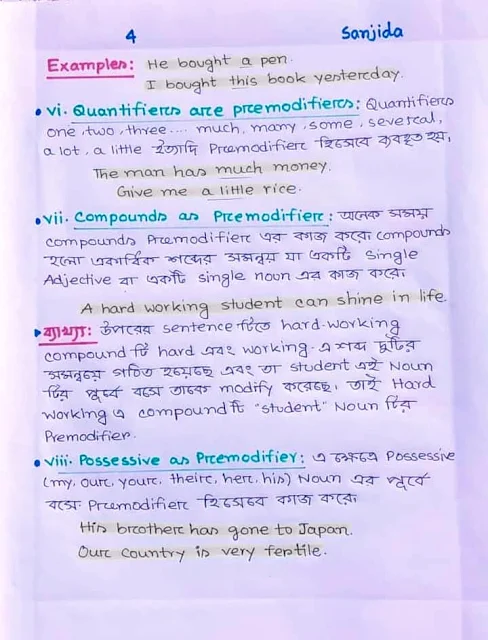 4 Sanjida
Examples: He bought a pen.
I bought this book yesterday.
• vi. Quantifiers are premodifiers: Quantifiers
one, two, three.... much, many, some, several,
a lot, a little ইত্যাদি Premodifier হিসেবে ব্যবহৃত হয়।
The man has much money.
Give me a little rice.
• vii. Compounds as Premodifier: অনেক সময়
compounds Premodifier এর কাজ করে। compounds
হলো একাধিক শব্দের সমন্বয় যা একটি single
Adjective বা একটি single noun এর কাজ করে।
A hard working student can shine in life.
▸ব্যাখ্যা: উপরের sentence টিতে hard-working
compound টি hard এবং working. এ শব্দ দুটির
সমন্বয়ে গঠিত হয়েছে এবং তা student এই Noun
টির পূর্বে বসে তাকে modify করেছে। তাই Hard
working এ compound টি "student" Noun টির
Premodifier.
• viii. Possessive as Premodifier: এ ক্ষেত্রে Possessive
(my, our, your, their, her, his) Noun এর পূর্বে
বসে Premodifier হিসেবে কাজ করে।
His brother has gone to Japan.
Our country is very fertile.